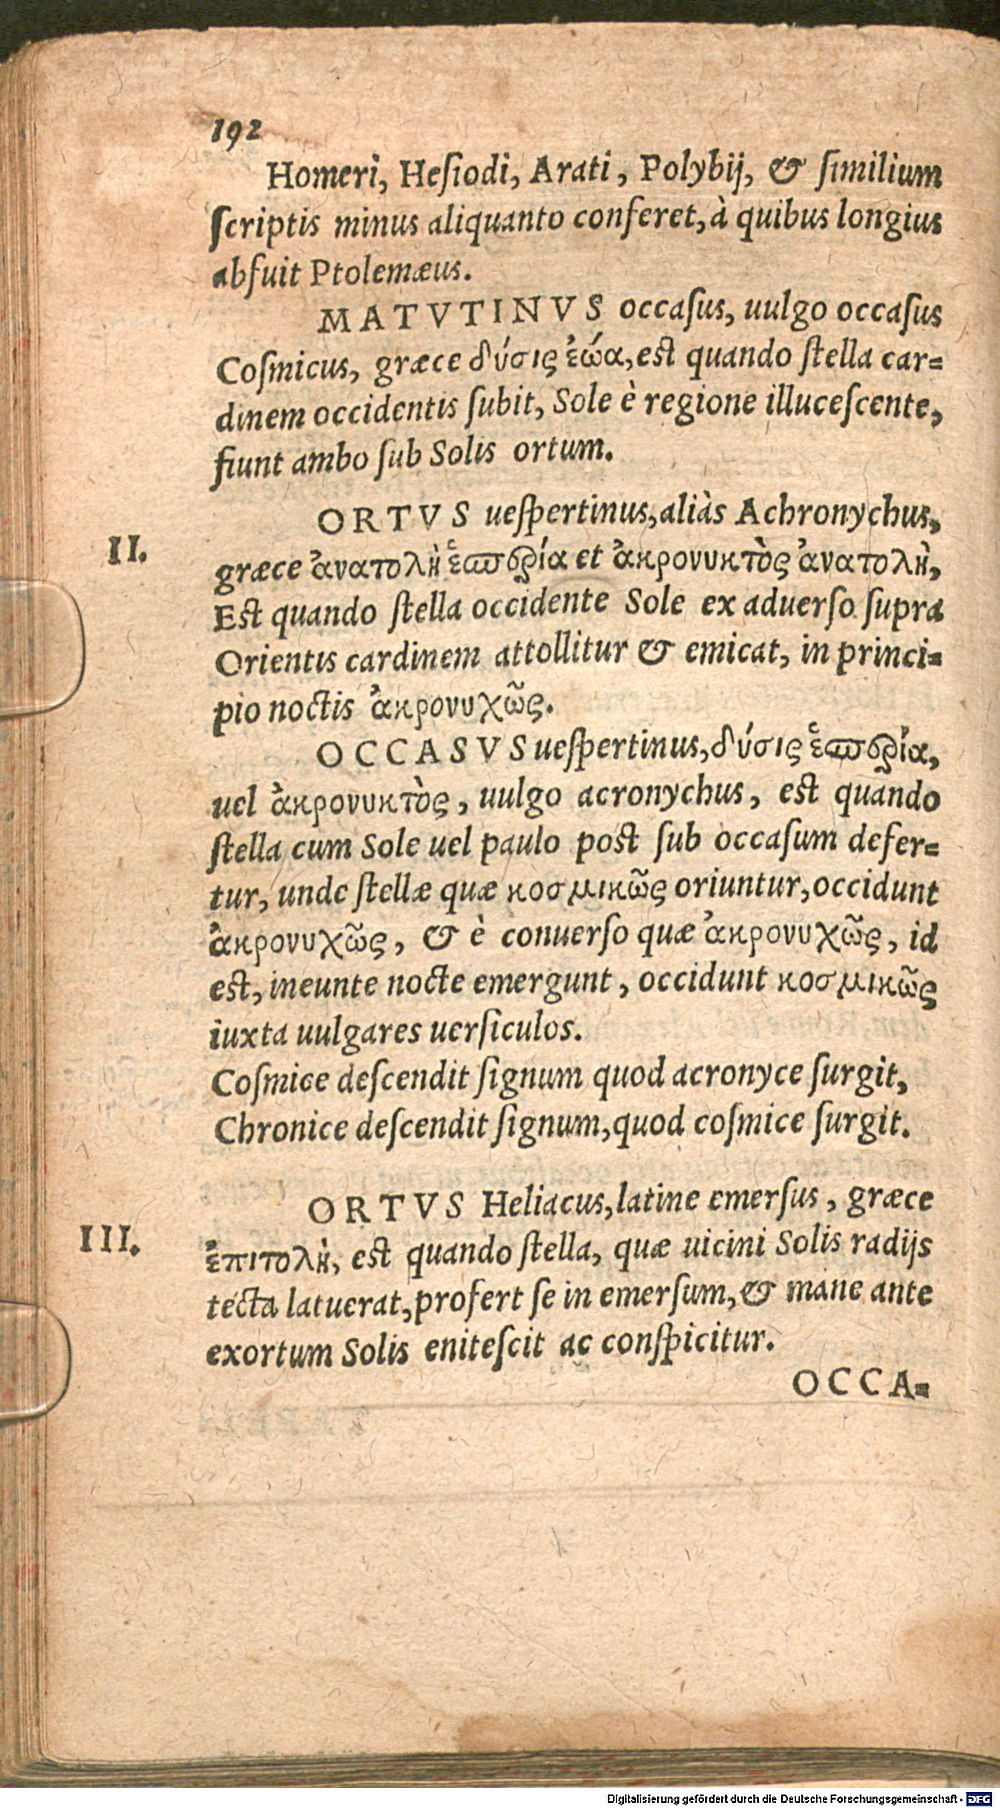 192
Homeri, Hesiodi, Arati, Polybij, & similium
scriptis minus aliquanto conferet, à quibus longius
abfuit Ptolemæus.
MATVTINVS occasus, uulgo occasus
Cosmicus, græce δύσις ἑώα, est quando stella car=
dinem occidentis subit, Sole è regione illucescente,
fiunt ambo sub Solis ortum.
II.
ORTVS uespertinus, aliàs Achronychus,
græce ἀνατολὴ ἑσπερία et ἀκρονυκτὸς ἀνατολὴ,
Est quando stella occidente Sole ex aduerso supra
Orientis cardinem attollitur & emicat, in princi=
pio noctis ἀκρονυχῶς.
OCCASVS uespertinus, δύσις ἑσπερία,
uel ἀκρονυκτὸς, uulgo acronychus, est quando
stella cum Sole uel paulo post sub occasum defer=
tur, unde stellæ quæ κοσμικῶς oriuntur, occidunt
ἀκρονυχῶς, & è conuerso quæ ἀκρονυχῶς, id
est, ineunte nocte emergunt, occidunt κοσμικῶς
iuxta uulgares uersiculos.
Cosmice descendit signum quod acronyce surgit,
Chronice descendit signum, quod cosmice surgit.
III.
ORTVS Heliacus, latine emersus, græce
ἐπιτολὴ, est quando stella, quæ uicini Solis radijs
tecta latuerat, profert se in emersum, & mane ante
exortum Solis enitescit ac conspicitur.
OCCA=
Digitalisierung gefördert durch die Deutsche Forschungsgemeinschaft - DFG